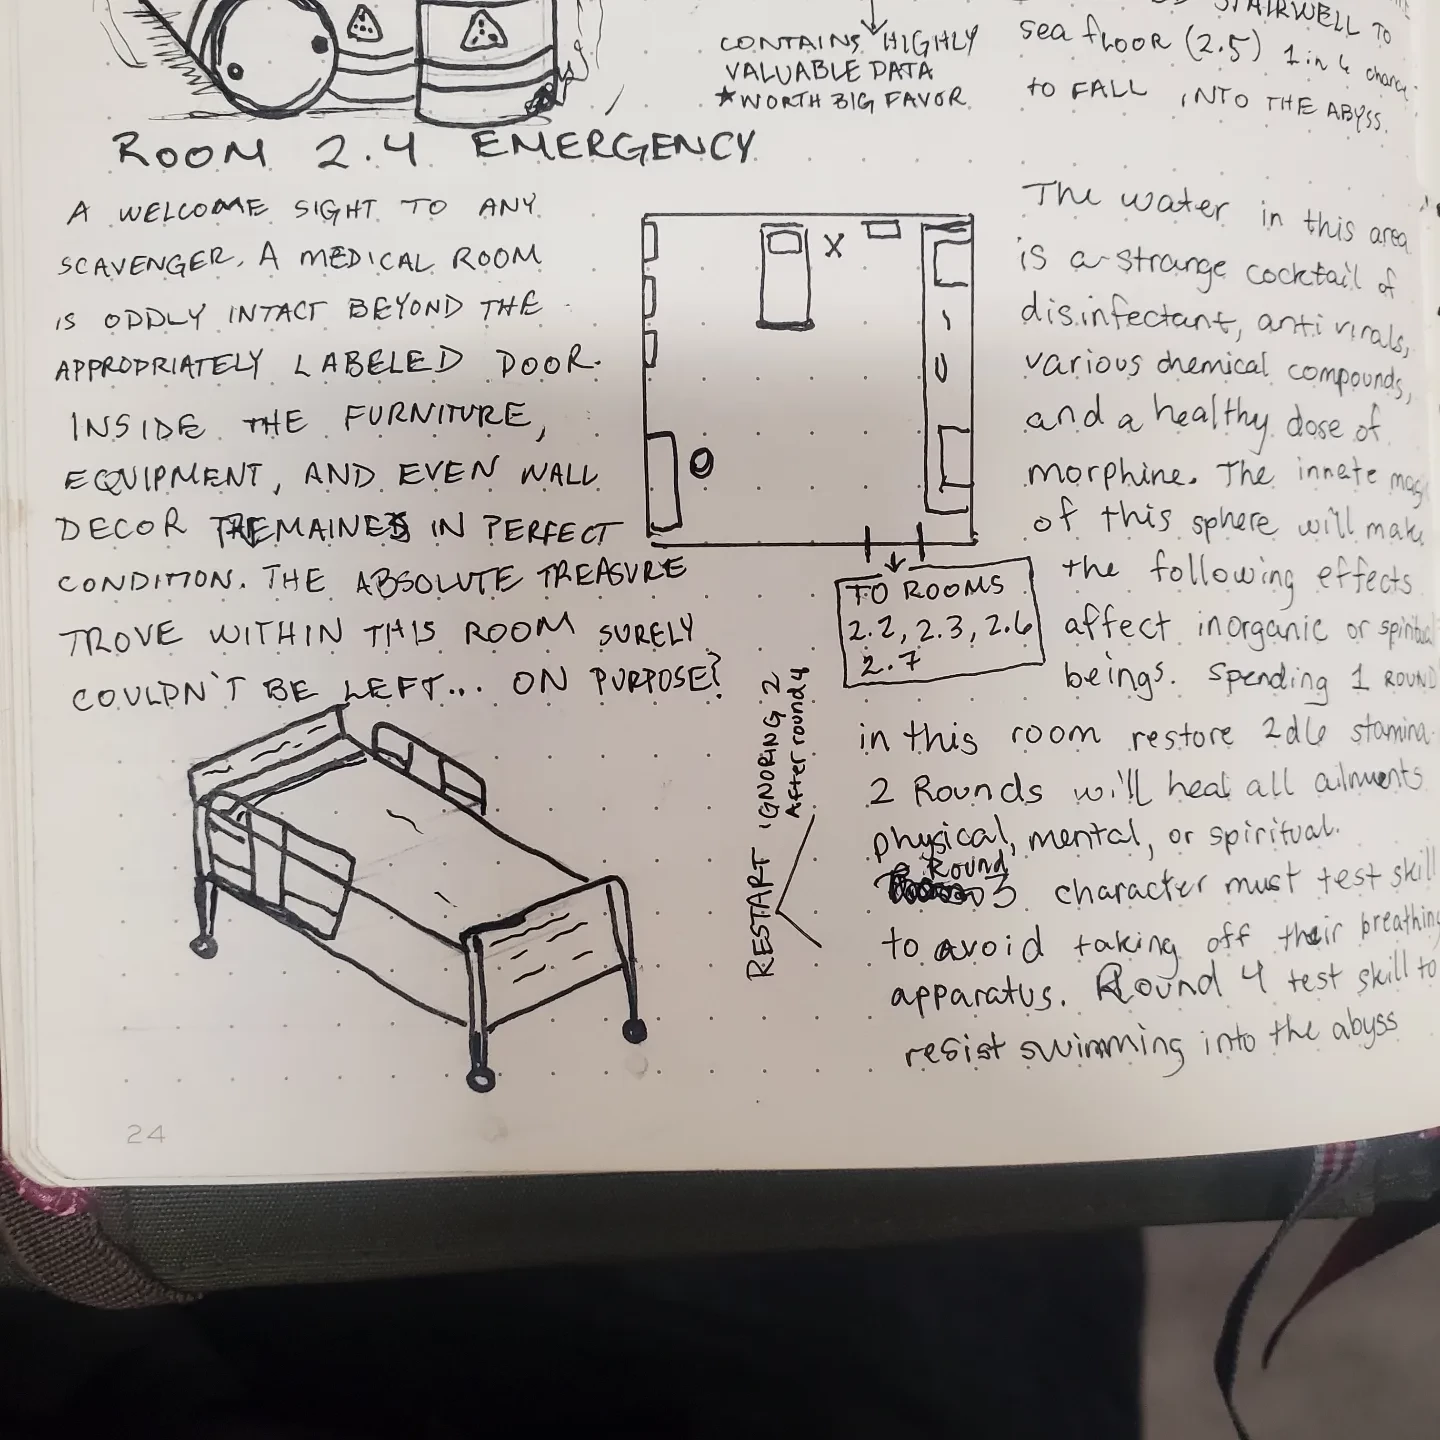 CONTAINS HIGHLY
VALUABLE DATA
★WORTH BIG FAVOR
STAIRWELL TO
sea fLOOR (2.5) 1 in 6 chance
to FALL INTO THE ABYSS.
ROOM 2.4 EMERGENCY
A WELCOME SIGHT TO ANY
SCAVENGER. A MEDICAL ROOM
IS ODDLY INTACT BEYOND THE
APPROPRIATELY LABELED DOOR.
INSIDE THE FURNITURE,
EQUIPMENT, AND EVEN WALL
DECOR REMAINES IN PERFECT
CONDITION. THE ABSOLUTE TREASURE
TROVE WITHIN THIS ROOM SURELY
COULDN'T BE LEFT... ON PURPOSE?
X
TO ROOMS
2.2, 2.3, 2.6
2.7
The water in this area
is a strange cocktail of
disinfectant, anti virals,
various chemical compounds,
and a healthy dose of
morphine. The innate magic
of this sphere will make
the following effects
affect inorganic or spiritual
beings. Spending 1 ROUND
in this room restore 2d6 stamina.
2 Rounds will heal all ailments
physical, mental, or spiritual.
Round
3 character must test skill
to avoid taking off their breathing
apparatus. Round 4 test skill to
resist swimming into the abyss
RESTART IGNORING 2
After round 4
24